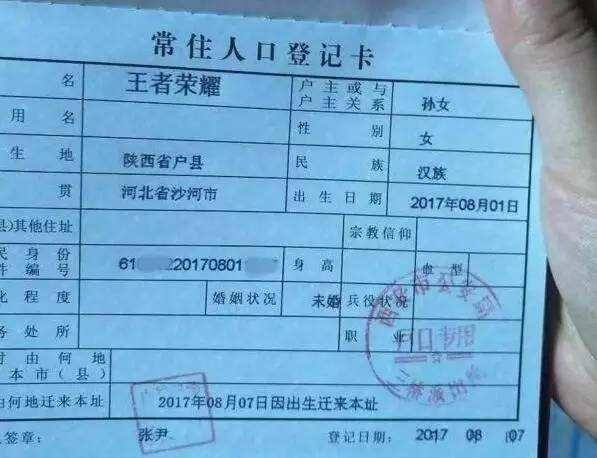 常住人口登记卡
名 王者荣耀 户主或与户主关系 孙女
用名 性别 女
生地 陕西省户县 民族 汉族
贯 河北省沙河市 出生日期 2017年08月01日
县)其他住址 宗教信仰
民身份
件编号 61 20170801 身高 血型
化程度 婚姻状况 未婚 兵役状况
务处所 职业
时由何地
本市(县)
由何地迁来本址 2017年08月07日因出生迁来本址
人签章: 张尹 登记日期: 2017 08 07
西安市公安局
户口专用